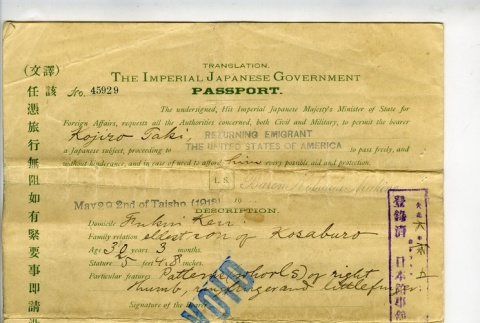 TRANSLATION.
THE IMPERIAL JAPANESE GOVERNMENT
PASSPORT.
(譯文)
該
No. 45929
任憑旅行無阻如有緊要事即請
The undersigned, His Imperial Japanese Majesty's Minister of State for
Foreign Affairs, requests all the Authorities concerned, both Civil and Military, to permit the bearer
Kojiro Taki,
RETURNING EMIGRANT
a Japanese subject, proceeding to THE UNITED STATES OF AMERICA to pass freely, and
without hinderance, and in case of need to afford him every possible aid and protection.
L. S.
May 29 2nd of Taisho (1913)
DESCRIPTION.
Domicile Fukui Ken.
Family relation eldest son of Kosaburo
Age 30 years 3 months.
Stature 5 feet 4.8 inches.
Particular features of right
thumb, ring finger and little finger.
Signature of the Bearer
VOID
登錄済
日本